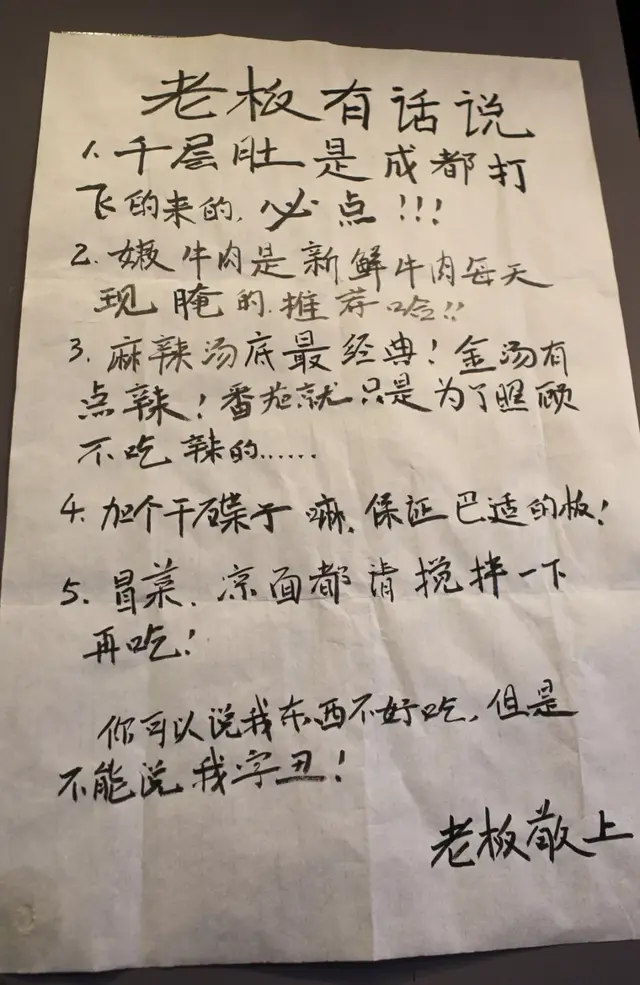 老板有话说
1. 千层肚是成都打
飞的来的, 必点!!!
2. 嫩牛肉是新鲜牛肉每天
现腌的.推荐哈!!
3. 麻辣汤底最经典! 金汤有
点辣! 番茄就只是为了照顾
不吃辣的......
4. 加个干碟子嘛, 保证巴适的板!
5. 冒菜、凉面都请搅拌一下
再吃!
你可以说我东西不好吃, 但是
不能说我字丑!
老板敬上